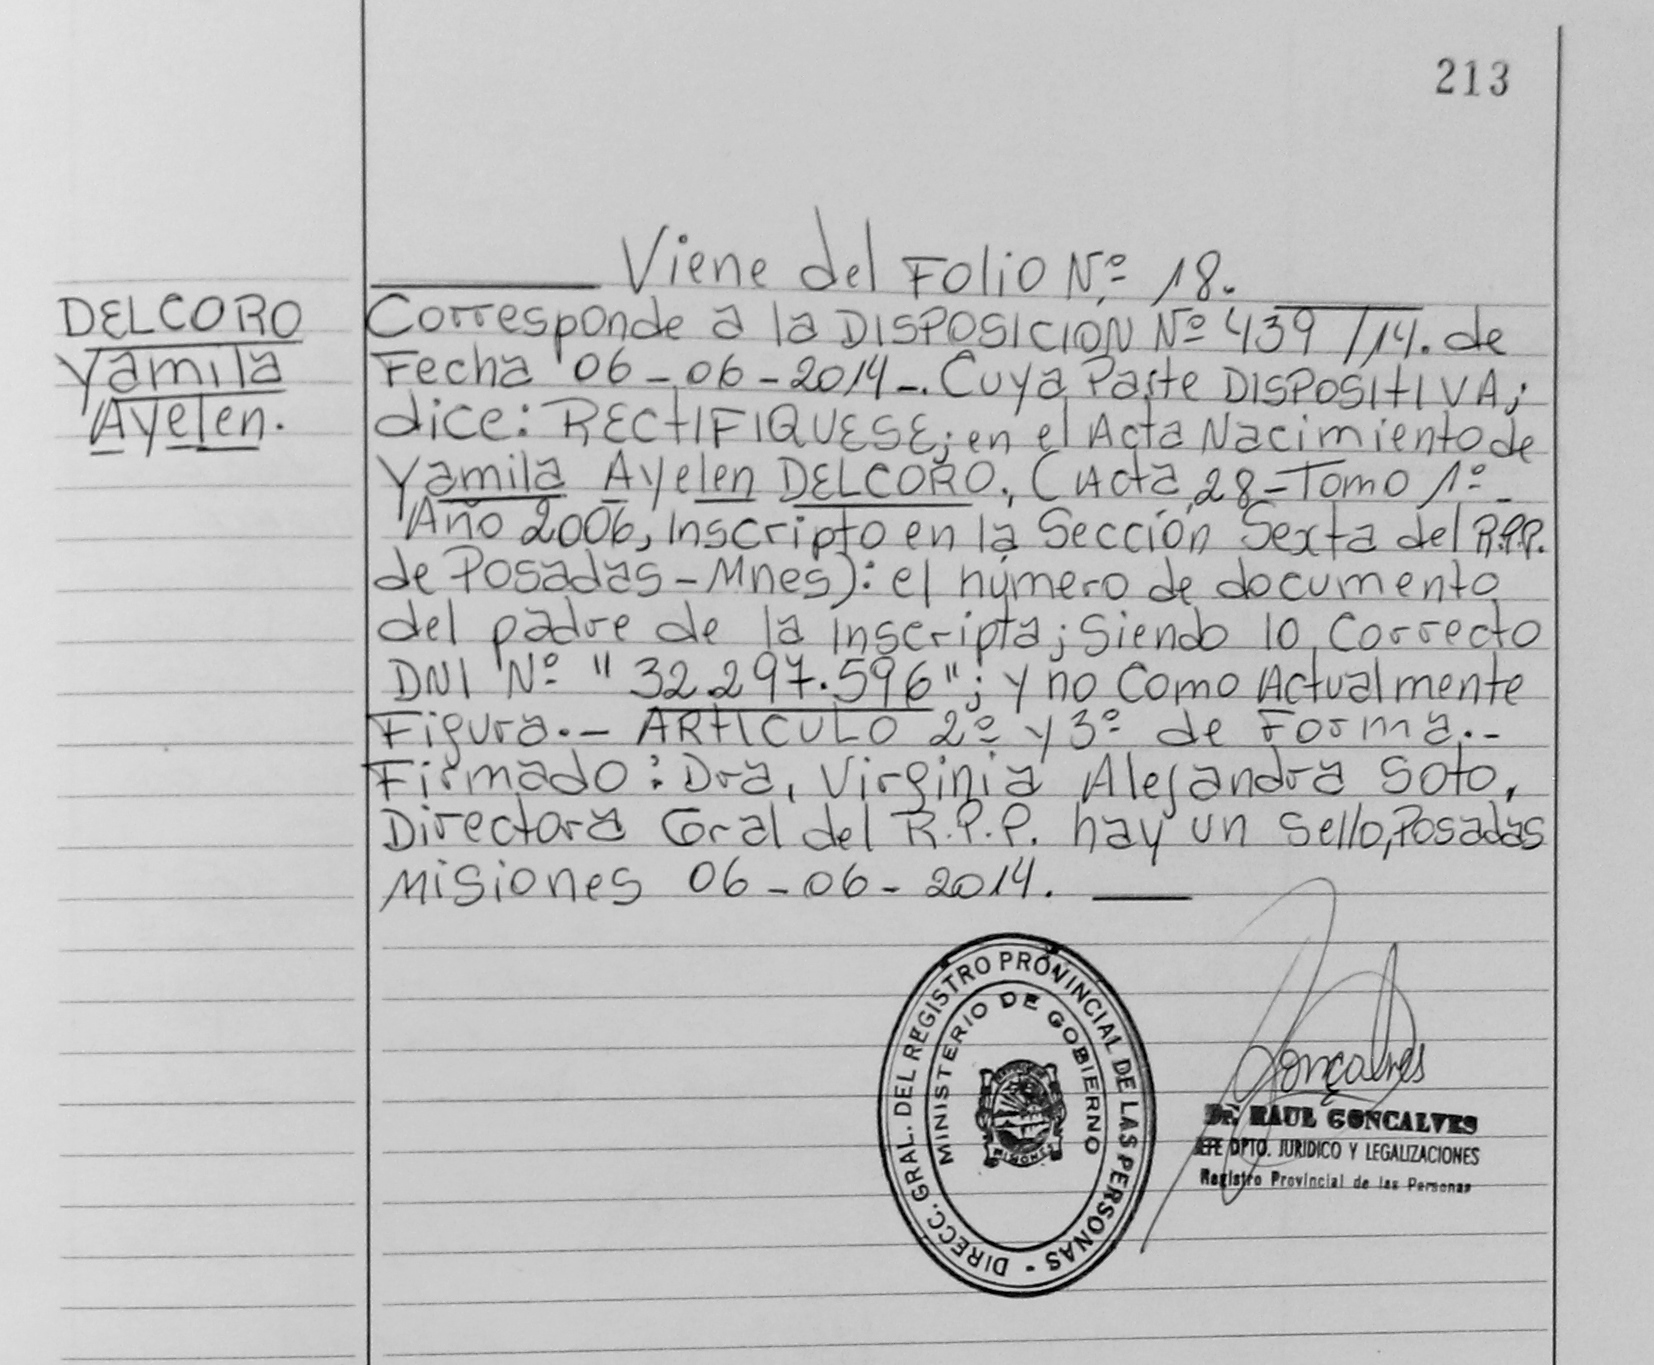 213
Viene del Folio Nº 18.
DELCORO
Yamila
Ayelen.
Corresponde a la DISPOSICION Nº 439/14. de
Fecha 06-06-2014-. Cuya Parte DISPOSITIVA;
dice: RECTIFIQUESE; en el Acta Nacimiento de
Yamila Ayelen DELCORO, (Acta 28-Tomo 1º-
Año 2006, Inscripto en la Sección Sexta del R.P.P.
de Posadas-Mnes): el número de documento
del padre de la inscripta; Siendo lo Correcto
DNI Nº "32.297.596"; y no Como Actualmente
Figura.- ARTICULO 2º y 3º de Forma.-
Firmado: Dra, Virginia Alejandra Soto,
Directora Gral del R.P.P. hay un sello, Posadas
Misiones 06-06-2014.
DIRECC. GRAL. DEL REGISTRO PROVINCIAL DE LAS PERSONAS -
MINISTERIO DE GOBIERNO
MISIONES
Gonçalves
Dr. RAUL GONCALVES
JEFE DPTO. JURIDICO Y LEGALIZACIONES
Registro Provincial de las Personas